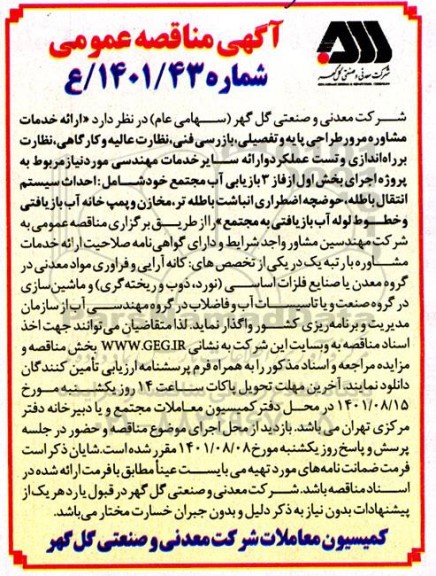 آگهی مناقصه عمومی
شماره ۱۴۰۱/۴۳/ع
شرکت معدنی و صنعتی گل گهر
شرکت معدنی و صنعتی گل گهر (سهامی عام) در نظر دارد «ارائه خدمات
مشاوره مرور طراحی پایه و تفصیلی، بازرسی فنی، نظارت عالیه و کارگاهی، نظارت
بر راه اندازی و تست عملکرد و ارائه سایر خدمات مهندسی مورد نیاز مربوط به
پروژه اجرای بخش اول از فاز ۳ بازیابی آب مجتمع خود شامل: احداث سیستم
انتقال باطله، حوضچه اضطراری انباشت باطله تر، مخازن و پمپ خانه آب بازیافتی
و خطوط لوله آب بازیافتی به مجتمع» را از طریق برگزاری مناقصه عمومی به
شرکت مهندسین مشاور واجد شرایط و دارای گواهی نامه صلاحیت ارائه خدمات
مشاوره با رتبه یک در یکی از تخصص های: کانه آرایی و فراوری مواد معدنی در
گروه معدن یا صنایع فلزات اساسی (نورد، ذوب و ریخته گری) و ماشین سازی
در گروه صنعت و یا تاسیسات آب و فاضلاب در گروه مهندسی آب از سازمان
مدیریت و برنامه ریزی کشور واگذار نماید. لذا متقاضیان می توانند جهت اخذ
اسناد مناقصه به وبسایت این شرکت به نشانی WWW.GEG.IR بخش مناقصه و
مزایده مراجعه و اسناد مذکور را به همراه فرم پرسشنامه ارزیابی تأمین کنندگان
دانلود نمایند. آخرین مهلت تحویل پاکات ساعت ۱۴ روز یکشنبه مورخ
۱۴۰۱/۰۸/۱۵ در محل دفتر کمیسیون معاملات مجتمع و یا دبیرخانه دفتر
مرکزی تهران می باشد. بازدید از محل اجرای موضوع مناقصه و حضور در جلسه
پرسش و پاسخ روز یکشنبه مورخ ۱۴۰۱/۰۸/۰۸ مقرر شده است. شایان ذکر است
فرمت ضمانت نامه های مورد تهیه می بایست عیناً مطابق با فرمت ارائه شده در
اسناد مناقصه باشد. شرکت معدنی و صنعتی گل گهر در قبول یا رد هر یک از
پیشنهادات بدون نیاز به ذکر دلیل و بدون جبران خسارت مختار می باشد.
کمیسیون معاملات شرکت معدنی و صنعتی گل گهر